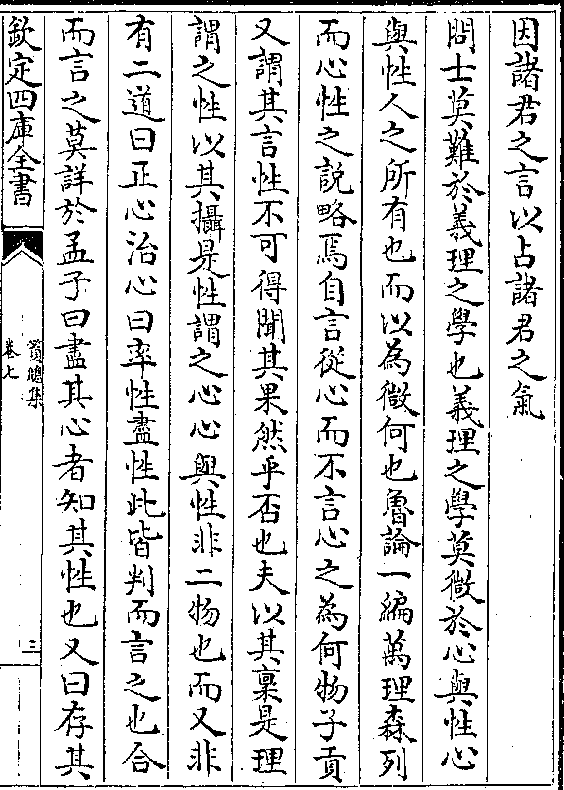 因諸君之言以占諸君之氣
問士莫難於義理之學也義理之學莫微於心與性心
與性人之所有也而以為微何也魯論一編萬理森列
而心性之説略焉自言從心而不言心之為何物子貢
又謂其言性不可得聞其果然乎否也夫以其稟是理
謂之性以其攝是性謂之心心與性非二物也而又非
有二道曰正心治心曰率性盡性此皆判而言之也合
而言之莫詳於孟子曰盡其心者知其性也又曰存其
欽定四庫全書
卷七
三